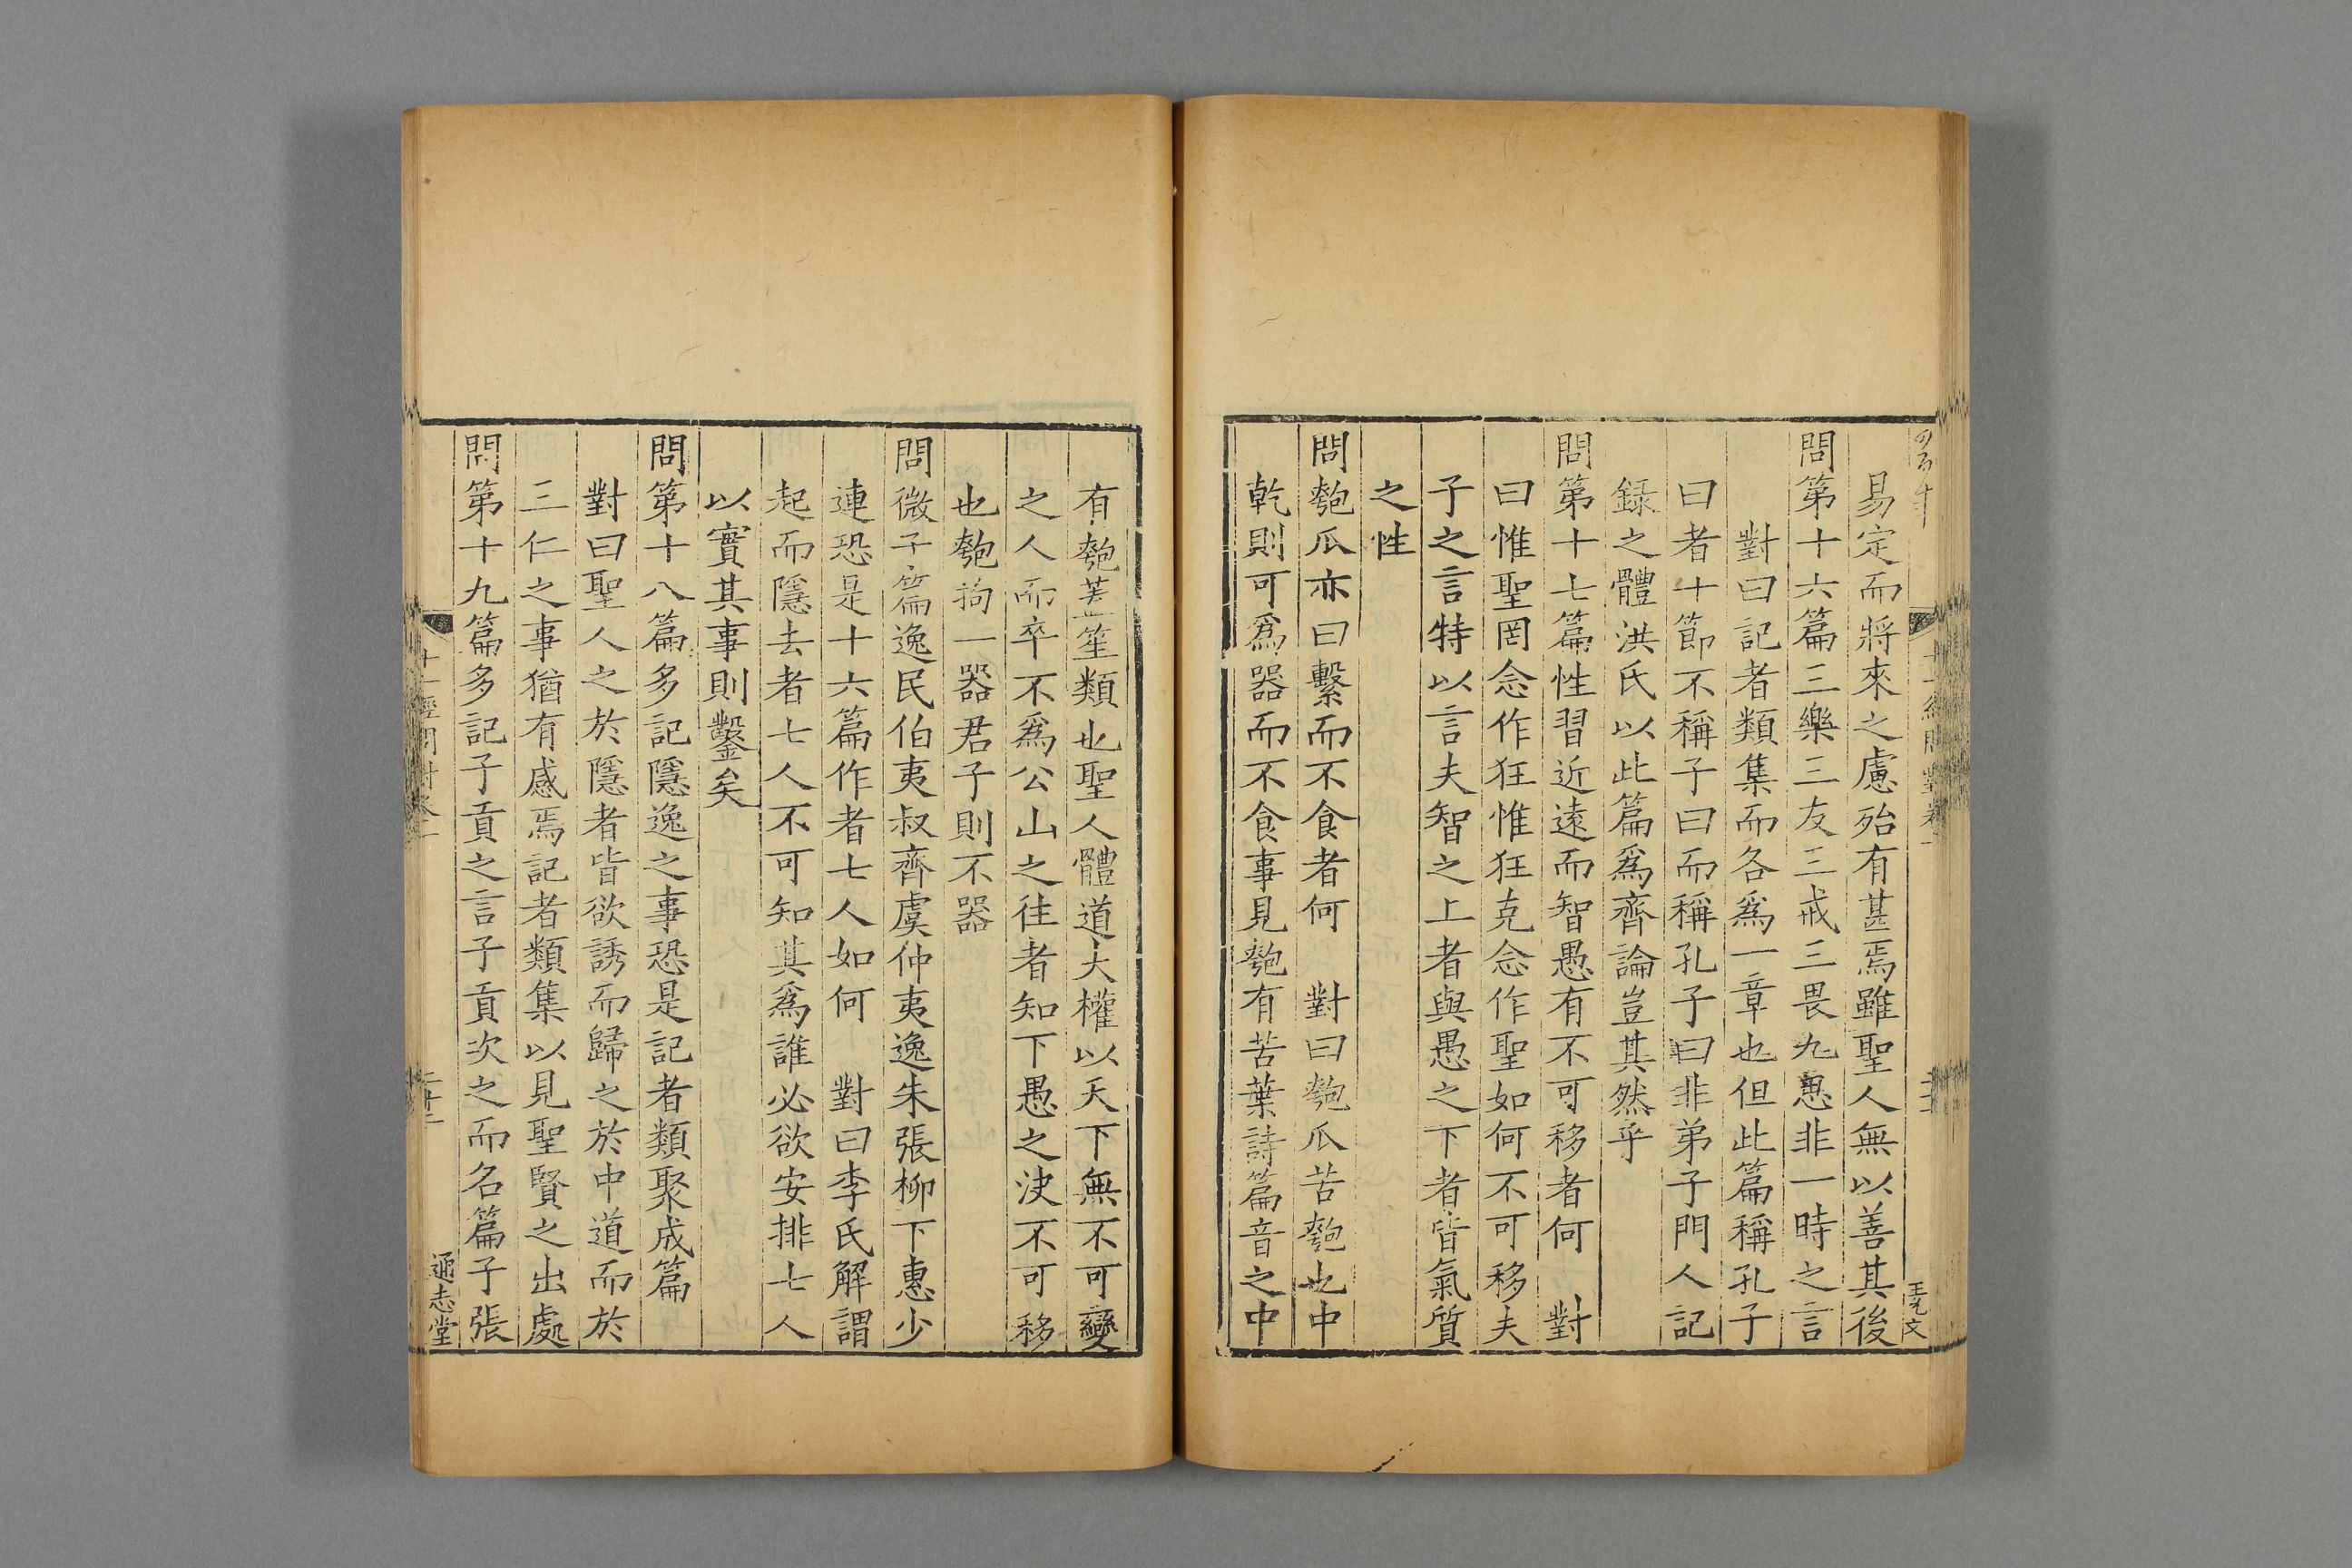 易定而將來之慮殆有甚焉雖聖人無以善其後
問第十六篇三樂三友三戒三畏九思非一時之言
對曰記者類集而各爲一章也但此篇稱孔子
曰者十節不稱子曰而稱孔子曰非弟子門人記
録之體洪氏以此篇爲齊論豈其然乎
問第十七篇性習近遠而智愚有不可移者何　對
曰惟聖罔念作狂惟狂克念作聖如何不可移夫
子之言特以言夫智之上者與愚之下者皆氣質
之性
問匏瓜亦曰繫而不食者何　對曰匏瓜苦匏也中
乾則可爲器而不食事見匏有苦葉詩篇音之中
有匏蓋笙類也聖人體道大權以天下無不可變
之人而卒不爲公山之往者知下愚之決不可移
也匏拘一器君子則不器
問微子篇逸民伯夷叔齊虞仲夷逸朱張柳下惠少
連恐是十六篇作者七人如何　對曰李氏解謂
起而隱去者七人不可知其爲誰必欲安排七人
以實其事則鑿矣
問第十八篇多記隱逸之事恐是記者類聚成篇
對曰聖人之於隱者皆欲誘而歸之於中道而於
三仁之事猶有感焉記者類集以見聖賢之出處
問第十九篇多記子貢之言子貢次之而名篇子張
通志堂